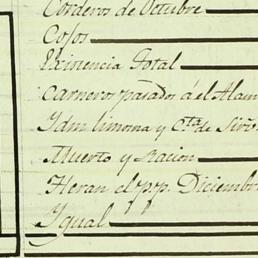 Corderos de Octubre
Cojos
Existencia Total
Carneros pasados á el Alam
Ydm limosna y Cta de
Muerto y Racion
Heran el pp. Diciembr
Ygual